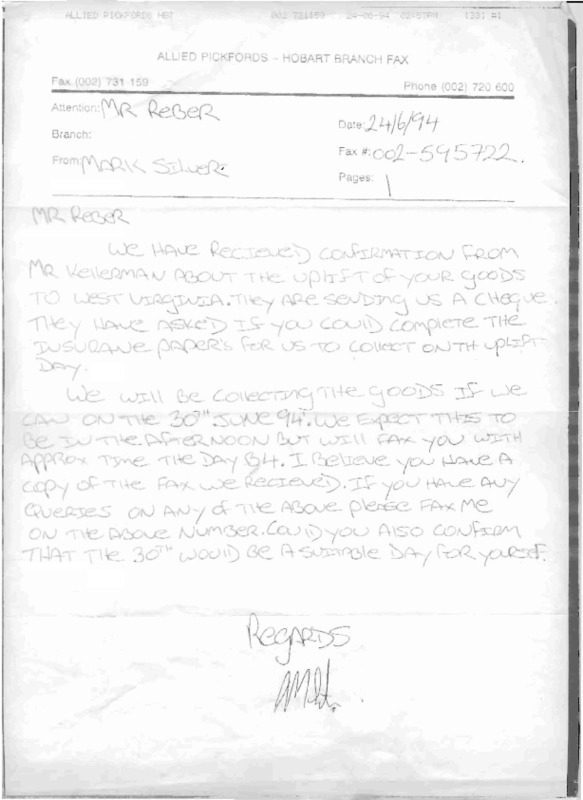 ALLIED PICKFORDS HBT 002 731159 24-06-94 02:57PM 1231 #1
ALLIED PICKFORDS - HOBART BRANCH FAX
Fax (002) 731 159 Phone (002) 720 600
Attention: MR REBER
Date: 24/6/94
Branch:
Fax #: 002-595722.
From: MARK SILVER.
Pages: 1
MR REBER
WE HAVE RECIEVED CONFIRMATION FROM
MR KELLERMAN ABOUT THE UPLIFT OF YOUR GOODS
TO WEST VIRGINIA. THEY ARE SENDING US A CHEQUE.
THEY HAVE ASKED IF YOU COULD COMPLETE THE
INSURANE PAPER'S FOR US TO COLLECT ON TH UPLIFT
DAY.
WE WILL BE COLLECTING THE GOODS IF WE
CAN ON THE 30TH JUNE 94. WE EXPECT THIS TO
BE IN THE AFTERNOON BUT WILL FAX YOU WITH
APPROX TIME THE DAY B4. I BELIEVE YOU HAVE A
COPY OF THE FAX WE RECIEVED. IF YOU HAVE ANY
QUERIES ON ANY OF THE ABOVE PLEASE FAX ME
ON THE ABOVE NUMBER. COULD YOU ALSO CONFIRM
THAT THE 30TH WOULD BE A SUITABLE DAY FOR YOURSELF.
REGARDS